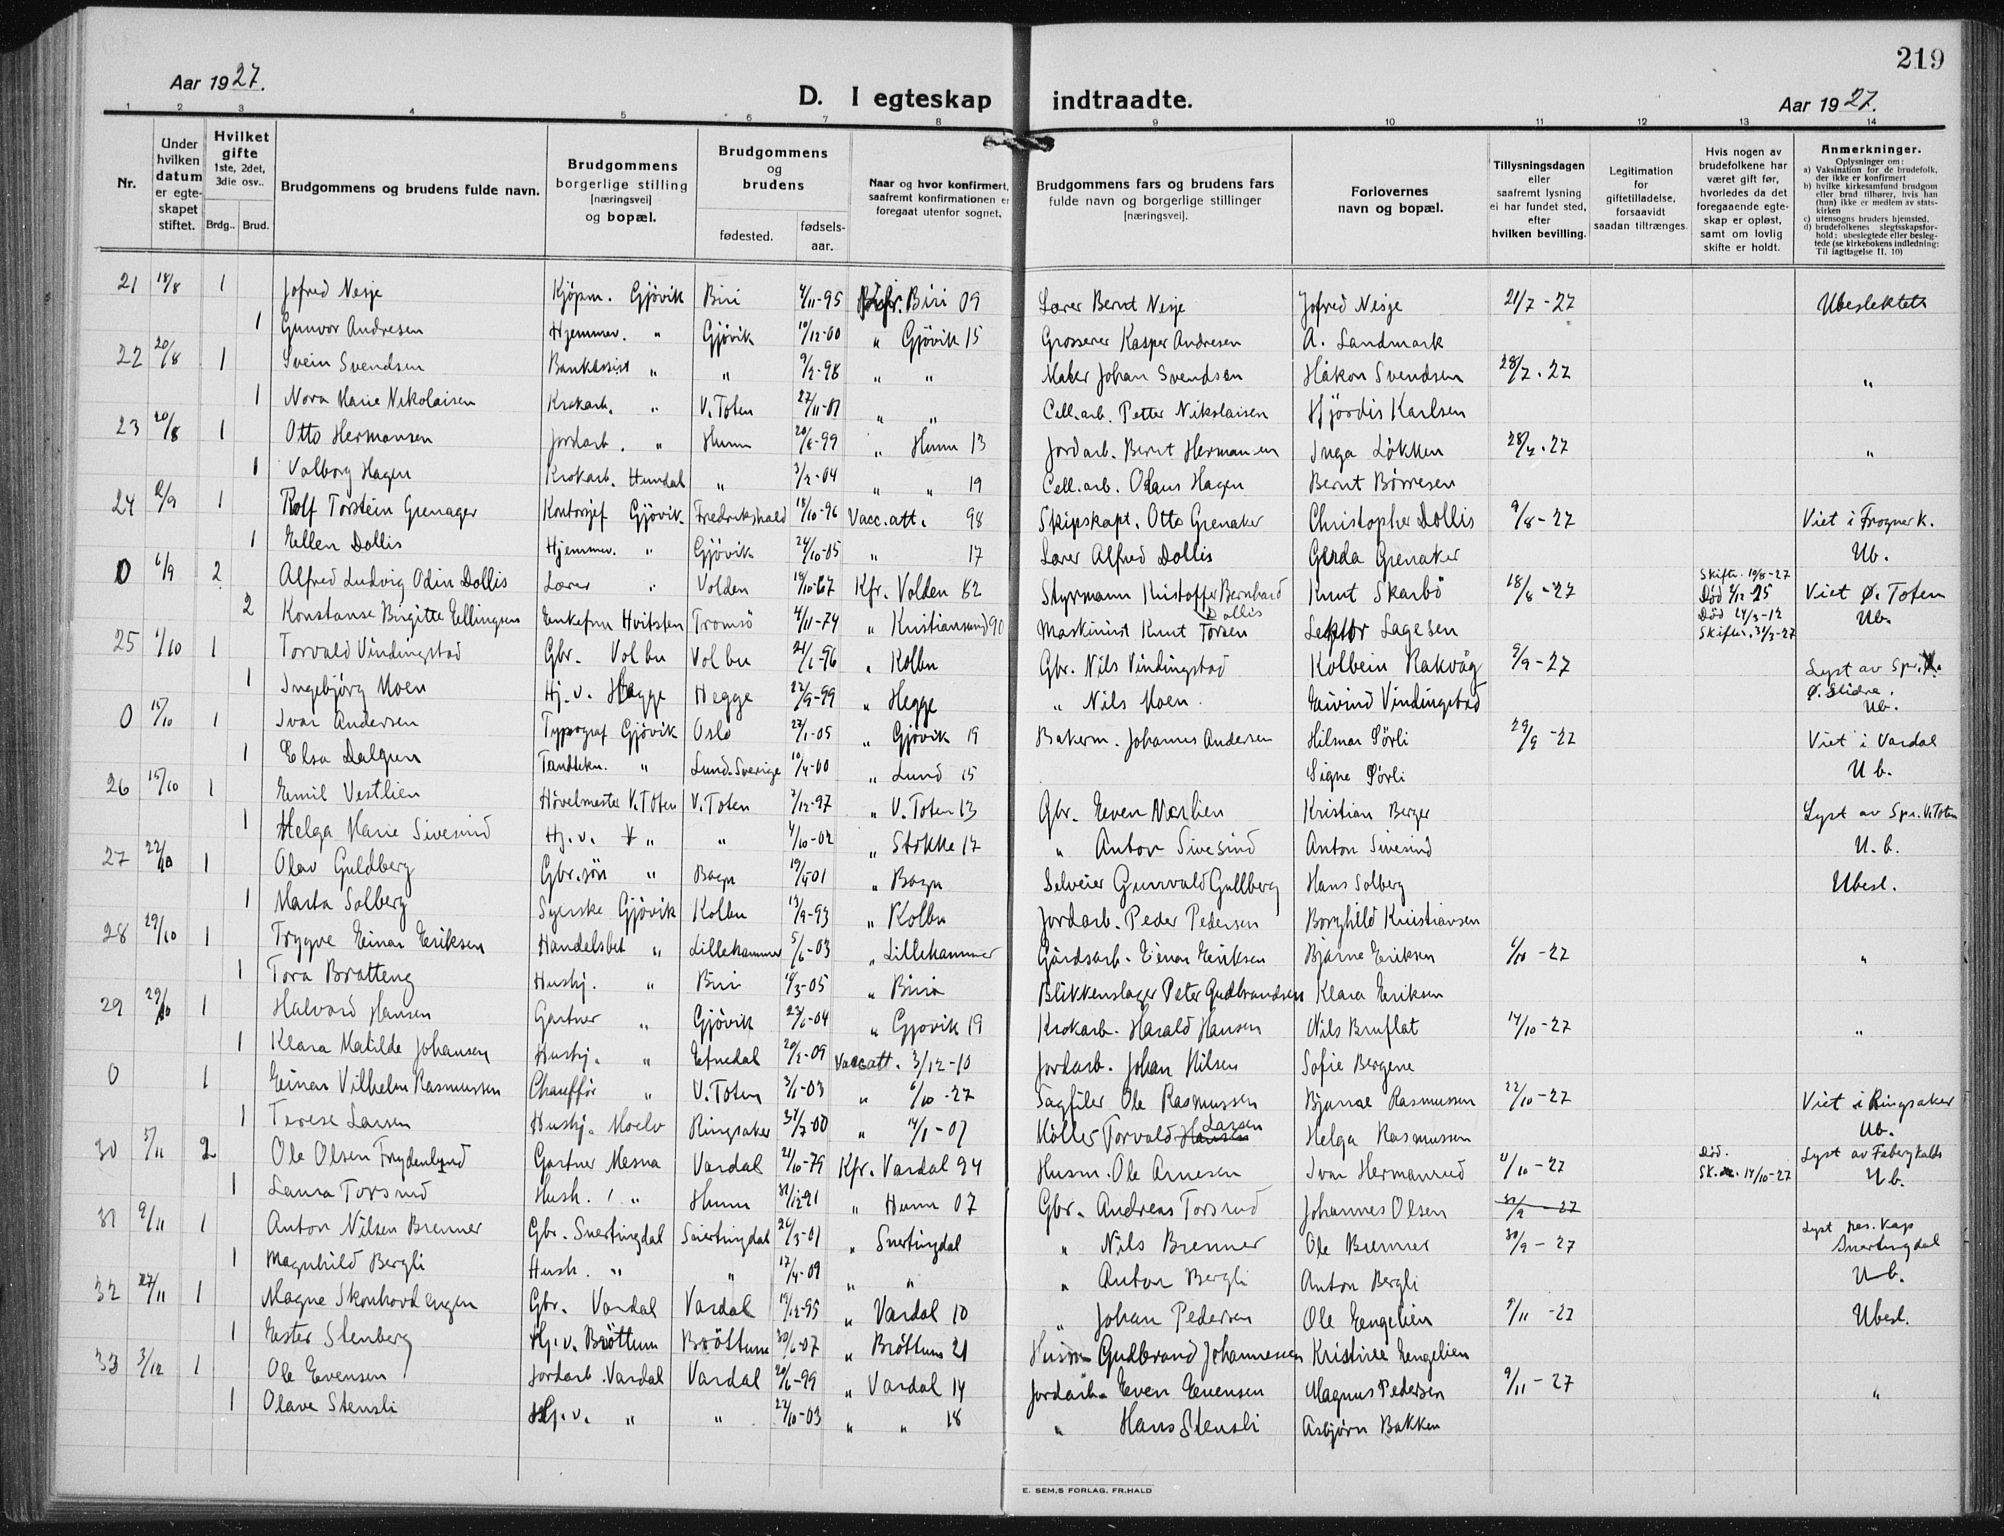 219
Aar 1927.
D. I egteskap indtraadte.
Aar 1927.
1 2 3 4 5 6 7 8 9 10 11 12 13 14
Nr.
Under hvilken datum er egteskapet stiftet.
Hvilket gifte 1ste, 2det, 3die osv.. Brdg.. Brud.
Brudgommens og brudens fulde navn.
Brudgommens borgerlige stilling [næringsvei] og bopæl.
Brudgommens og brudens fødested. fødselsaar.
Naar og hvor konfirmert, saafremt konfirmationen er foregaat utenfor sognet.
Brudgommens fars og brudens fars fulde navn og borgerlige stillinger [næringsvei].
Forlovernes navn og bopæl.
Tillysningsdagen eller saafremt lysning ei har fundet sted, efter hvilken bevilling.
Legitimation for giftetilladelse, forsaavidt saadan tiltrænges.
Hvis nogen av brudefolkene har været gift før, hvorledes da det foregaaende egteskap er opløst, samt om lovlig skifte er holdt.
Anmerkninger.
Oplysninger om:
a) Vaksination for de brudefolk, der ikke er konfirmert
b) hvilke kirkesamfund brudgom eller brud tilhører, hvis han (hun) ikke er medlem av statskirken
c) utensogns bruders hjemsted,
d) brudefolkenes slegtsskapsforhold; ubeslegtede eller beslegtede (se kirkebokens indledning: Til iagttagelse II. 10)
21 18/8 1 Jofred Nesje Kjöpm. Gjövik Biri 4/11-95 Biri 09 Lærer Bernt Nesje Jofred Nesje 21/7-27 Ubeslektet
1 Gunvor Andresen Hjemmev. " Gjövik 10/12-00 " Gjövik 15 Grosserer Kasper Andresen A. Landmark
22 20/8 1 Svein Svendsen Bankassist " " 9/2-98 " " Maler Johan Svendsen Håkon Svendsen 28/7-27 "
1 Nora Marie Nikolaisen Krokarb. " V. Toten 27/11-01 " " Cell.arb. Petter Nikolaisen Hjördis Karlsen
23 20/8 1 Otto Hermansen Jordarb. " Hunn 20/6-99 " Hunn 13 Jordarb. Bernt Hermansen Inga Løkken 28/7-27 "
1 Valborg Hagen Krokarb. Hundal " 3/2-04 " " 19 Cell.arb. Olaus Hagen Bernt Børresen
24 2/9 1 Rolf Torstein Grenager Kontorsjef Gjövik Fredrikshald 18/10-96 Vacc.att. 98 Skipskapt. Otto Grenaker Christopher Dollis 9/8-27 Viet i Frogner k.
1 Ellen Dollis Hjemmev. " Gjövik 24/10-05 " 17 Lærer Alfred Dollis Gerda Grenaker Ub.
0 6/9 2 Alfred Ludvig Odin Dollis Lærer " Volden 18/10-67 Kfr. Volden 82 Styrmann Kristoffer Bernhard Dollis Knut Skarbö 18/8-27 Skifte. 10/8-27 Död 4/12 25 Viet Ø. Toten
2 Konstanse Birgitte Ellingsen Enkefru Hvitsten Tromsö 4/11-74 " Kristiansund 90 Maskinist Knut Torsen Lektor Lagesen Död 24/3-12 Skifte. 31/3-27 Ub.
25 1/10 1 Torvald Vindingstad Gbr. Volbu Volbu 21/6-96 " Kolbu Gbr. Nils Vindingstad Kolbein Rakvåg 9/9-27 Lyst av Spr. i
1 Ingebjörg Moen Hj.v. Hegge Hegge 22/9-99 " Hegge " Nils Moen Eivind Vindingstad Ø. Slidre. Ub.
0 15/10 1 Ivar Andersen Typograf Gjövik Oslo 27/1-05 " Gjövik 19 Bakerm. Johannes Andersen Hilmar Sörli 29/9-27 Viet i Vardal
1 Elsa Dalgren Tandtekn. " Lund. Sverige 10/4-00 " Lund 15 Signe Sörli Ub.
26 15/10 1 Emil Vestlien Hövelmester V. Toten V. Toten 7/12-97 " V. Toten 13 Gbr. Even Nærlien Kristian Berger Lyst av Spr. V. Toten
1 Helga Marie Sivesind Hj.v. " " 4/10-02 " Stokke 17 " Anton Sivesind Anton Sivesind U.b.
27 22/10 1 Olav Guldberg Gbr.sön " Bagn 19/4-01 " Bagn Selveier Gunvald Gullberg Hans Solberg Ubesl.
1 Marta Solberg Syerske Gjövik Kolbu 13/9-93 " Kolbu Jordarb. Peder Pedersen Borghild Kristiansen
28 29/10 1 Trygve Einar Eriksen Handelsbet " Lillehammer 5/6-03 " Lillehammer Gårdsarb. Einar Eriksen Bjarne Eriksen 6/10-27 "
1 Tora Bratteng Hushj. " Biri 14/3-05 " Biri Blikkenslager Peter Gudbrandsen Klara Eriksen
29 29/10 1 Halvard Hansen Gartner " Gjövik 23/6-04 " Gjövik 19 Krokarb. Harald Hansen Nils Bruflat 14/10-27 "
1 Klara Matilde Johansen Hushj. " Etnedal 20/2-09 Vacc.att. 3/12-10 Jordarb. Johan Nilsen Sofie Bergene
0 1 Einar Vilhelm Rasmussen Chauffør " V. Toten 3/1-03 " 6/10-27 Sagfiler Ole Rasmussen Bjarne Rasmussen 22/10-27 Viet i Ringsaker
1 Terese Larsen Hushj. Moelv Ringsaker 31/7-00 " 14/1-07 Möller Torvald Hansen Larsen Helga Rasmussen Ub.
30 5/11 2 Ole Olsen Frydenlund Gartner Mesna Vardal 21/10-79 Kfr. Vardal 94 Husm. Ole Arnesen Ivar Hermanrud 21/10-27 Död. Sk. 14/10-27 Lyst av
1 Laura Torsrud Hush. " Hunn 31/12-91 " Hunn 07 Gbr. Andreas Torsrud Johannes Olsen U.b.
31 9/11 1 Anton Nilsen Brenner Gbr. Snertingdal Snertingdal 26/3-01 " Snertingdal " Nils Brenner Ole Brenner 30/9-27 Lyst res. Kap Snertingdal
1 Magnhild Bergli Hush. " " 17/4-09 " " " Anton Bergli Anton Bergli Ub.
32 27/11 1 Magne Skonhovdengen Gbr. Vardal Vardal 19/12-95 " Vardal 10 " Johan Pedersen Ole Engelien 9/11-27 Ubesl.
1 Ester Stenberg Hj.v. Bröttum Bröttum 30/6-07 " Bröttum 21 Husm. Gudbrand Johannessen Kristine Engelien
33 3/12 1 Ole Evensen Jordarb. Vardal Vardal 20/6-99 " Vardal 14 Jordarb. Even Evensen Magnus Pedersen 9/11-27 "
1 Olave Stensli Hj.v. " " 27/10-03 " " 18 " Hans Stensli Asbjørn Bakken
E. SEM,S FORLAG, FR.HALD